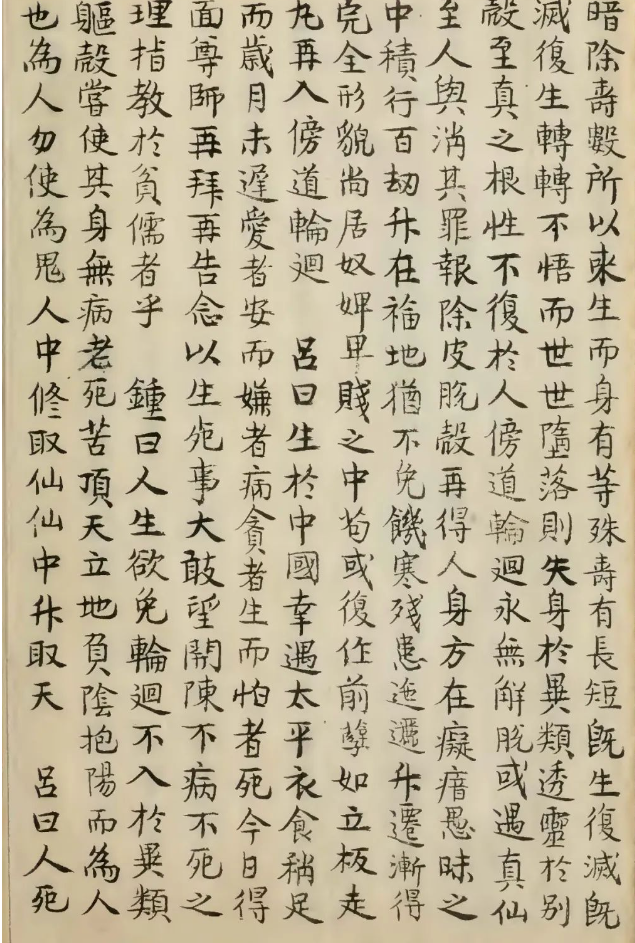 暗除壽數所以來生而身有等殊壽有長短既生復滅既
滅復生轉轉不悟而世世墮落則失身於異類透靈於別
殼至真之根性不復於人傍道輪迴永無解脫或遇真仙
至人與消其罪報除皮脫殼再得人身方在癡瘖愚昧之
中積行百劫升在福地猶不免饑寒殘患迤邐升遷漸得
完全形貌尚居奴婢卑賤之中苟或復作前孽如立板走
丸再入傍道輪迴 呂曰生於中國幸遇太平衣食稍足
而歲月未遲愛者安而嫌者病貪者生而怕者死今日得
面尊師再拜再告念以生死事大敢望開陳不病不死之
理指教於貧儒者乎 鍾曰人生欲免輪迴不入於異類
軀殼嘗使其身無病老死苦頂天立地負陰抱陽而為人
也為人勿使為鬼人中修取仙仙中升取天 呂曰人死